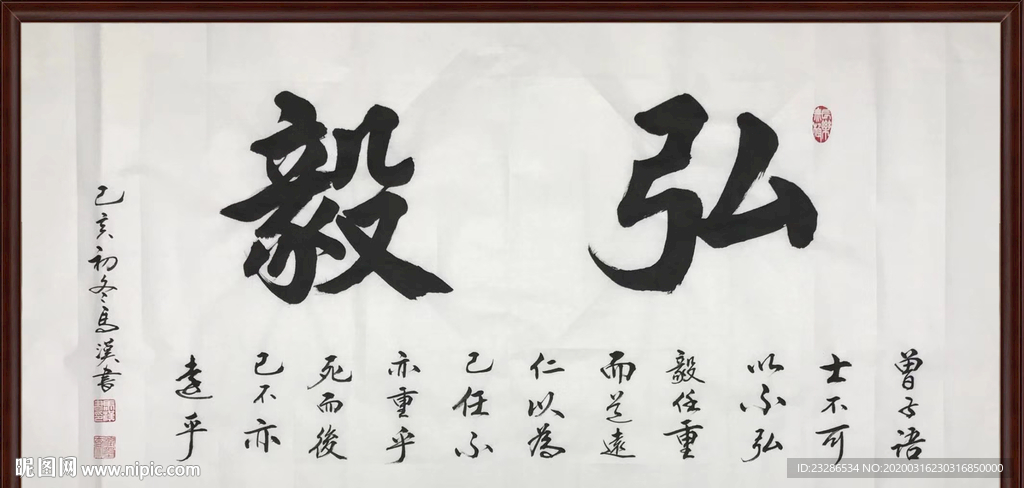 弘毅
曾子語
士不可
以不弘
毅任重
而道遠
仁以為
己任不
亦重乎
死而後
已不亦
遠乎
己亥初冬馬漢書
昵图网 www.nipic.com
ID:23286534 NO:20200316230316850000